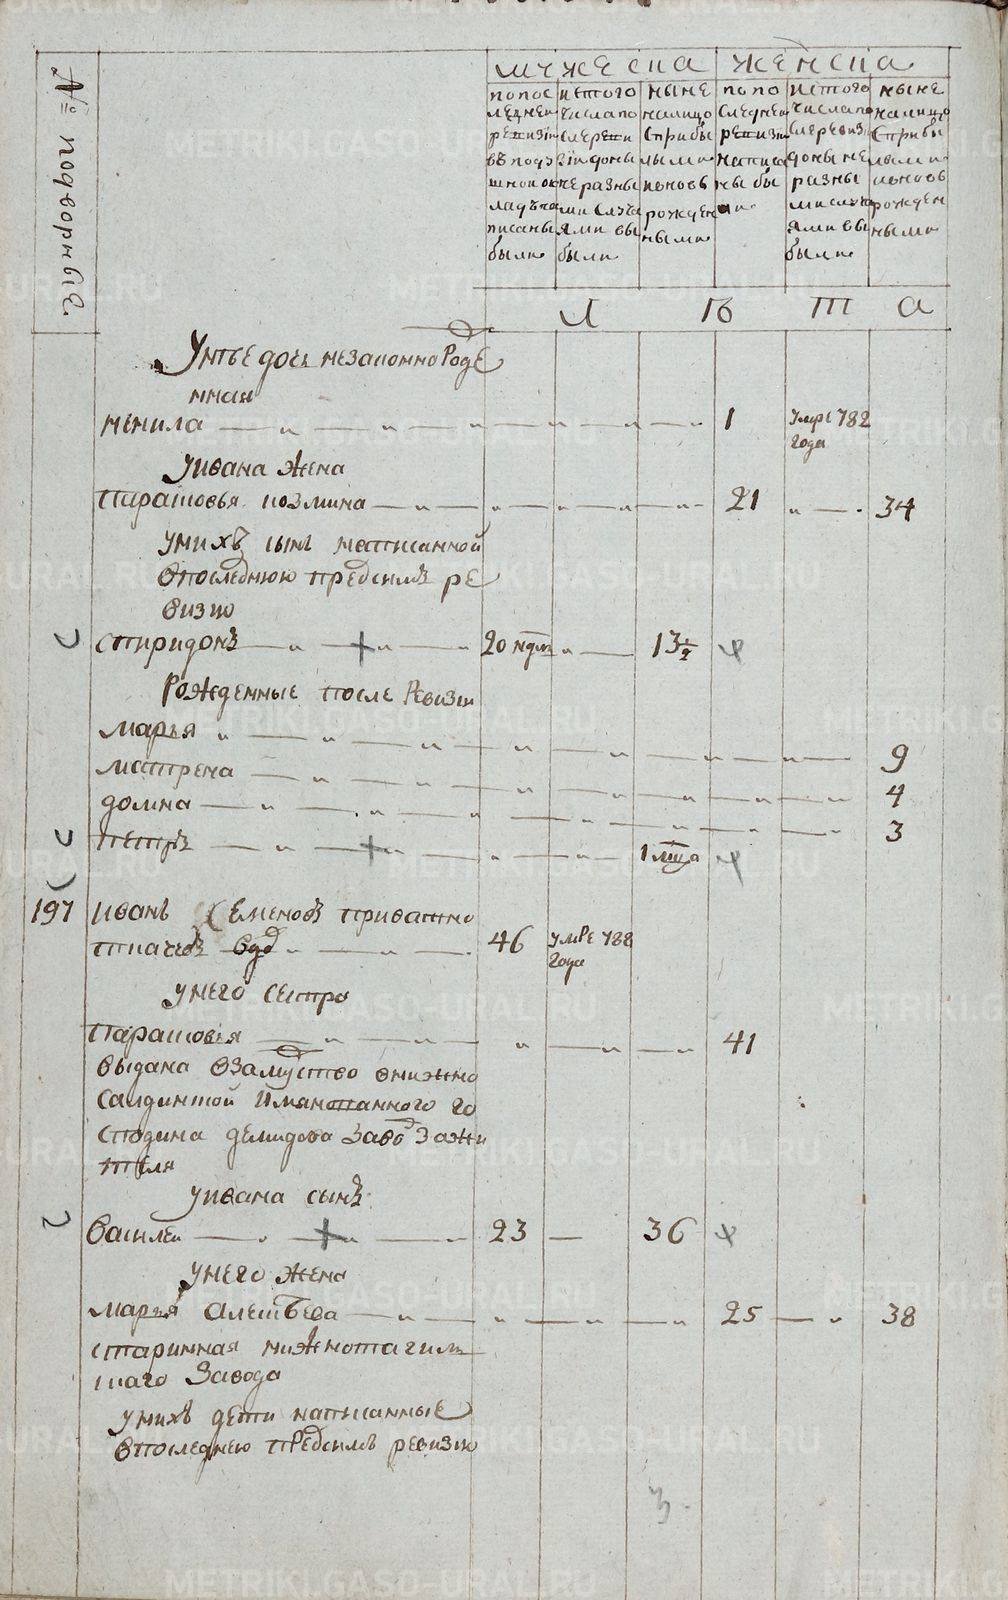 № подворные
мужеска женска
по пос
леднеи
ревизіи
въ подз
шнои ок
ладъ на
писаны
были
ис того
числа по
сле реви
зіи доны
не разны
ми случа
ями вы
были
ныне
налицо
с прибы
лыми
и вновь
рожден
ными
по по
следнеи
ревизіи
написа
ны бы
ли
ис того
числа по
сле ревизіи
доны не
разны
ми случа
ями вы
были
ныне
налицо
с прибы
лыми
и вновь
рожден
ными
Л ѣ т а
У нее дочь незаконно Роде
нная
ненила 1 умре 782
года
У ивана жена
Парасковья козмина 21 34
У нихъ сынъ написанной
впоследнюю предсимъ ре
визию
спиридонъ 20 ндль 13 1/2
Рожденные после Ревизіи
марья 9
матрена 4
домна 3
петръ 1 мца
197 Иванъ Семеновъ приватно
ткачевъ вдд 46 умре 788
года
У него сестра
Парасковья 41
выдана взамуство внижно
салдинской имянованного го
сподина демидова заводъ зажи
теля
У ивана сынъ
Василеи 23 36
У него жена
марья алексеева 25 38
старинная нижнотагиль
скаго завода
У нихъ дети написанные
впоследнею предсимъ ревизию
METRIKI.GASO-URAL.RU